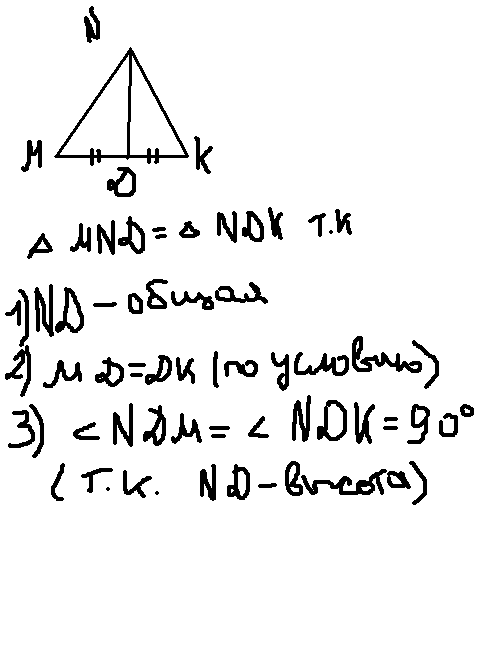 N
M
K
D
△ MND = △ NDK т.к
1) ND – общая
2) MD = DK (по условию)
3) < NDM = < NDK = 90°
(т.к. ND – высота)